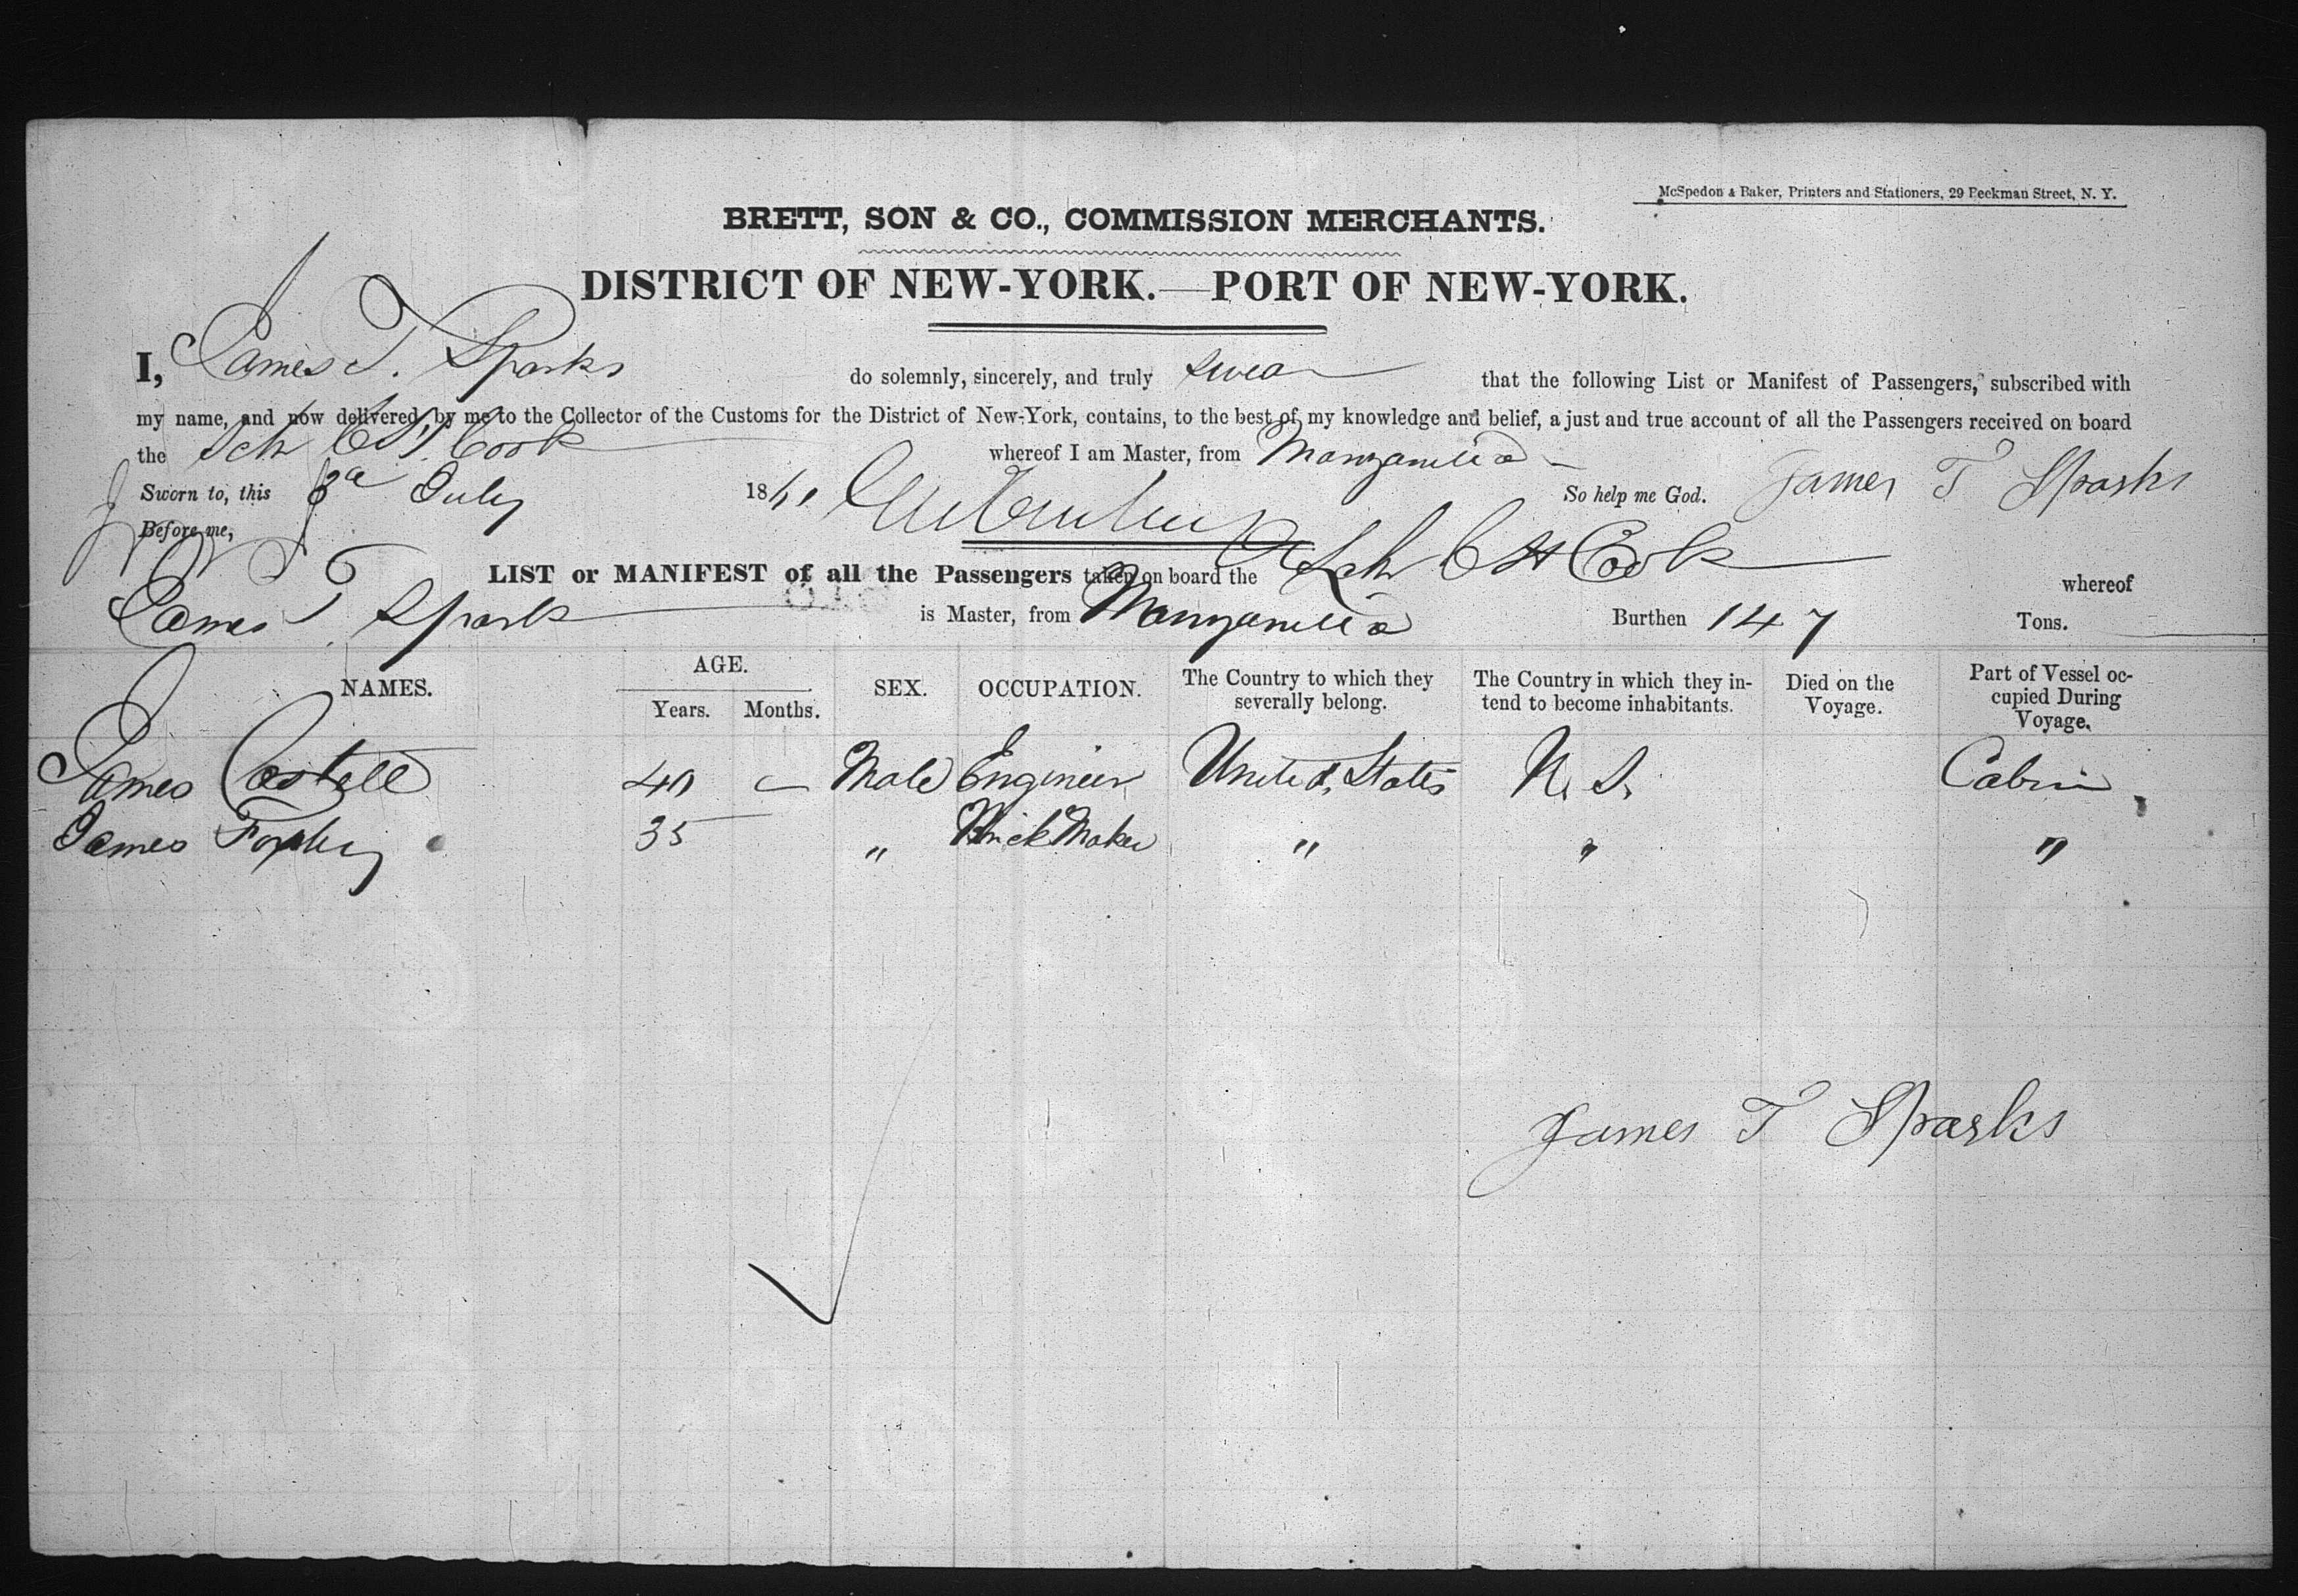 McSpedon & Baker, Printers and Stationers, 29 Beekman Street, N. Y.
BRETT, SON & CO., COMMISSION MERCHANTS.
DISTRICT OF NEW-YORK.—PORT OF NEW-YORK.
I, James T. Sparks do solemnly, sincerely, and truly swear that the following List or Manifest of Passengers, subscribed with
my name, and now delivered by me to the Collector of the Customs for the District of New-York, contains, to the best of my knowledge and belief, a just and true account of all the Passengers received on board
the Sch C H Cook whereof I am Master, from Manzanilla
Sworn to, this 3d July 1861 So help me God. James T Sparks
Before me,
LIST or MANIFEST of all the Passengers taken on board the Sch C H Cook whereof
James T. Sparks is Master, from Manzanilla Burthen 147 Tons.
NAMES. AGE. Years. Months. SEX. OCCUPATION. The Country to which they severally belong. The Country in which they intend to become inhabitants. Died on the Voyage. Part of Vessel occupied During Voyage.
James Costell 40 — Male Engineer United States U. S. Cabin
James 35 — " Brick Maker " " "
James T Sparks